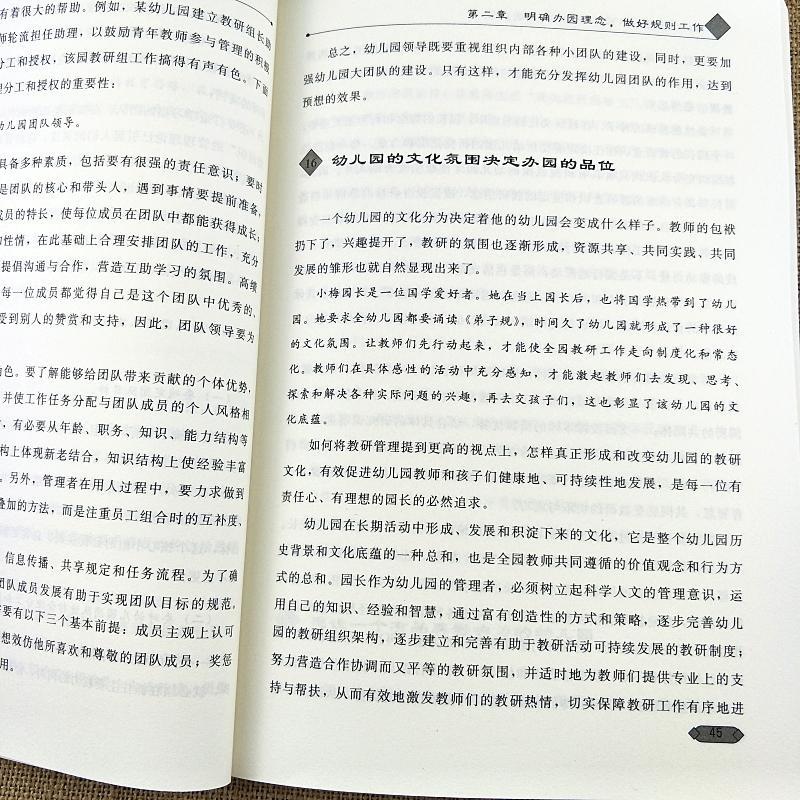 有着很大的帮助。例如，某幼儿园建立教研组长助
师轮流担任助理，以鼓励青年教师参与管理的积极
分工和授权，该园教研组工作搞得有声有色。下面
分工和授权的重要性：
幼儿园团队领导。
具备多种素质，包括要有很强的责任意识；要时
是团队的核心和带头人，遇到事情要提前准备，
成员的特长，使每位成员在团队中都能获得成长；
性情，在此基础上合理安排团队的工作，充分
提倡沟通与合作，营造互助学习的氛围。高绩
每一位成员都觉得自己是这个团队中优秀的、
受到别人的赞赏和支持，因此，团队领导要为
角色。要了解能够给团队带来贡献的个体优势，
并使工作任务分配与团队成员的个人风格相
，有必要从年龄、职务、知识、能力结构等
构上体现新老结合，知识结构上使经验丰富
。另外，管理者在用人过程中，要力求做到
叠加的方法，而是注重员工组合时的互补度、
信息传播、共享规定和任务流程。为了确
团队成员发展有助于实现团队目标的规范，
需要有以下三个基本前提：成员主观上认可
想效仿他所喜欢和尊敬的团队成员；奖惩
用。
第二章 明确办园理念，做好规则工作
总之，幼儿园领导既要重视组织内部各种小团队的建设，同时，更要加
强幼儿园大团队的建设。只有这样，才能充分发挥幼儿园团队的作用，达到
预想的效果。
16 幼儿园的文化氛围决定办园的品位
一个幼儿园的文化分为决定着他的幼儿园会变成什么样子。教师的包袱
扔下了，兴趣提开了，教研的氛围也逐渐形成，资源共享、共同实践、共同
发展的雏形也就自然显现出来了。
小梅园长是一位国学爱好者。她在当上园长后，也将国学热带到了幼儿
园。她要求全幼儿园都要诵读《弟子规》，时间久了幼儿园就形成了一种很好
的文化氛围。让教师们先行动起来，才能使全园教研工作走向制度化和常态
化。教师们在具体感性的活动中充分感知，才能激起教师们去发现、思考、
探索和解决各种实际问题的兴趣，再去交孩子们，这也彰显了该幼儿园的文
化底蕴。
如何将教研管理提到更高的视点上，怎样真正形成和改变幼儿园的教研
文化，有效促进幼儿园教师和孩子们健康地、可持续性地发展，是每一位有
责任心、有理想的园长的必然追求。
幼儿园在长期活动中形成、发展和积淀下来的文化，它是整个幼儿园历
史背景和文化底蕴的一种总和，也是全园教师共同遵循的价值观念和行为方
式的总和。园长作为幼儿园的管理者，必须树立起科学人文的管理意识，运
用自己的知识、经验和智慧，通过富有创造性的方式和策略，逐步完善幼儿
园的教研组织架构，逐步建立和完善有助于教研活动可持续发展的教研制度；
努力营造合作协调而又平等的教研氛围，并适时地为教师们提供专业上的支
持与帮扶，从而有效地激发教师们的教研热情，切实保障教研工作有序地进
45